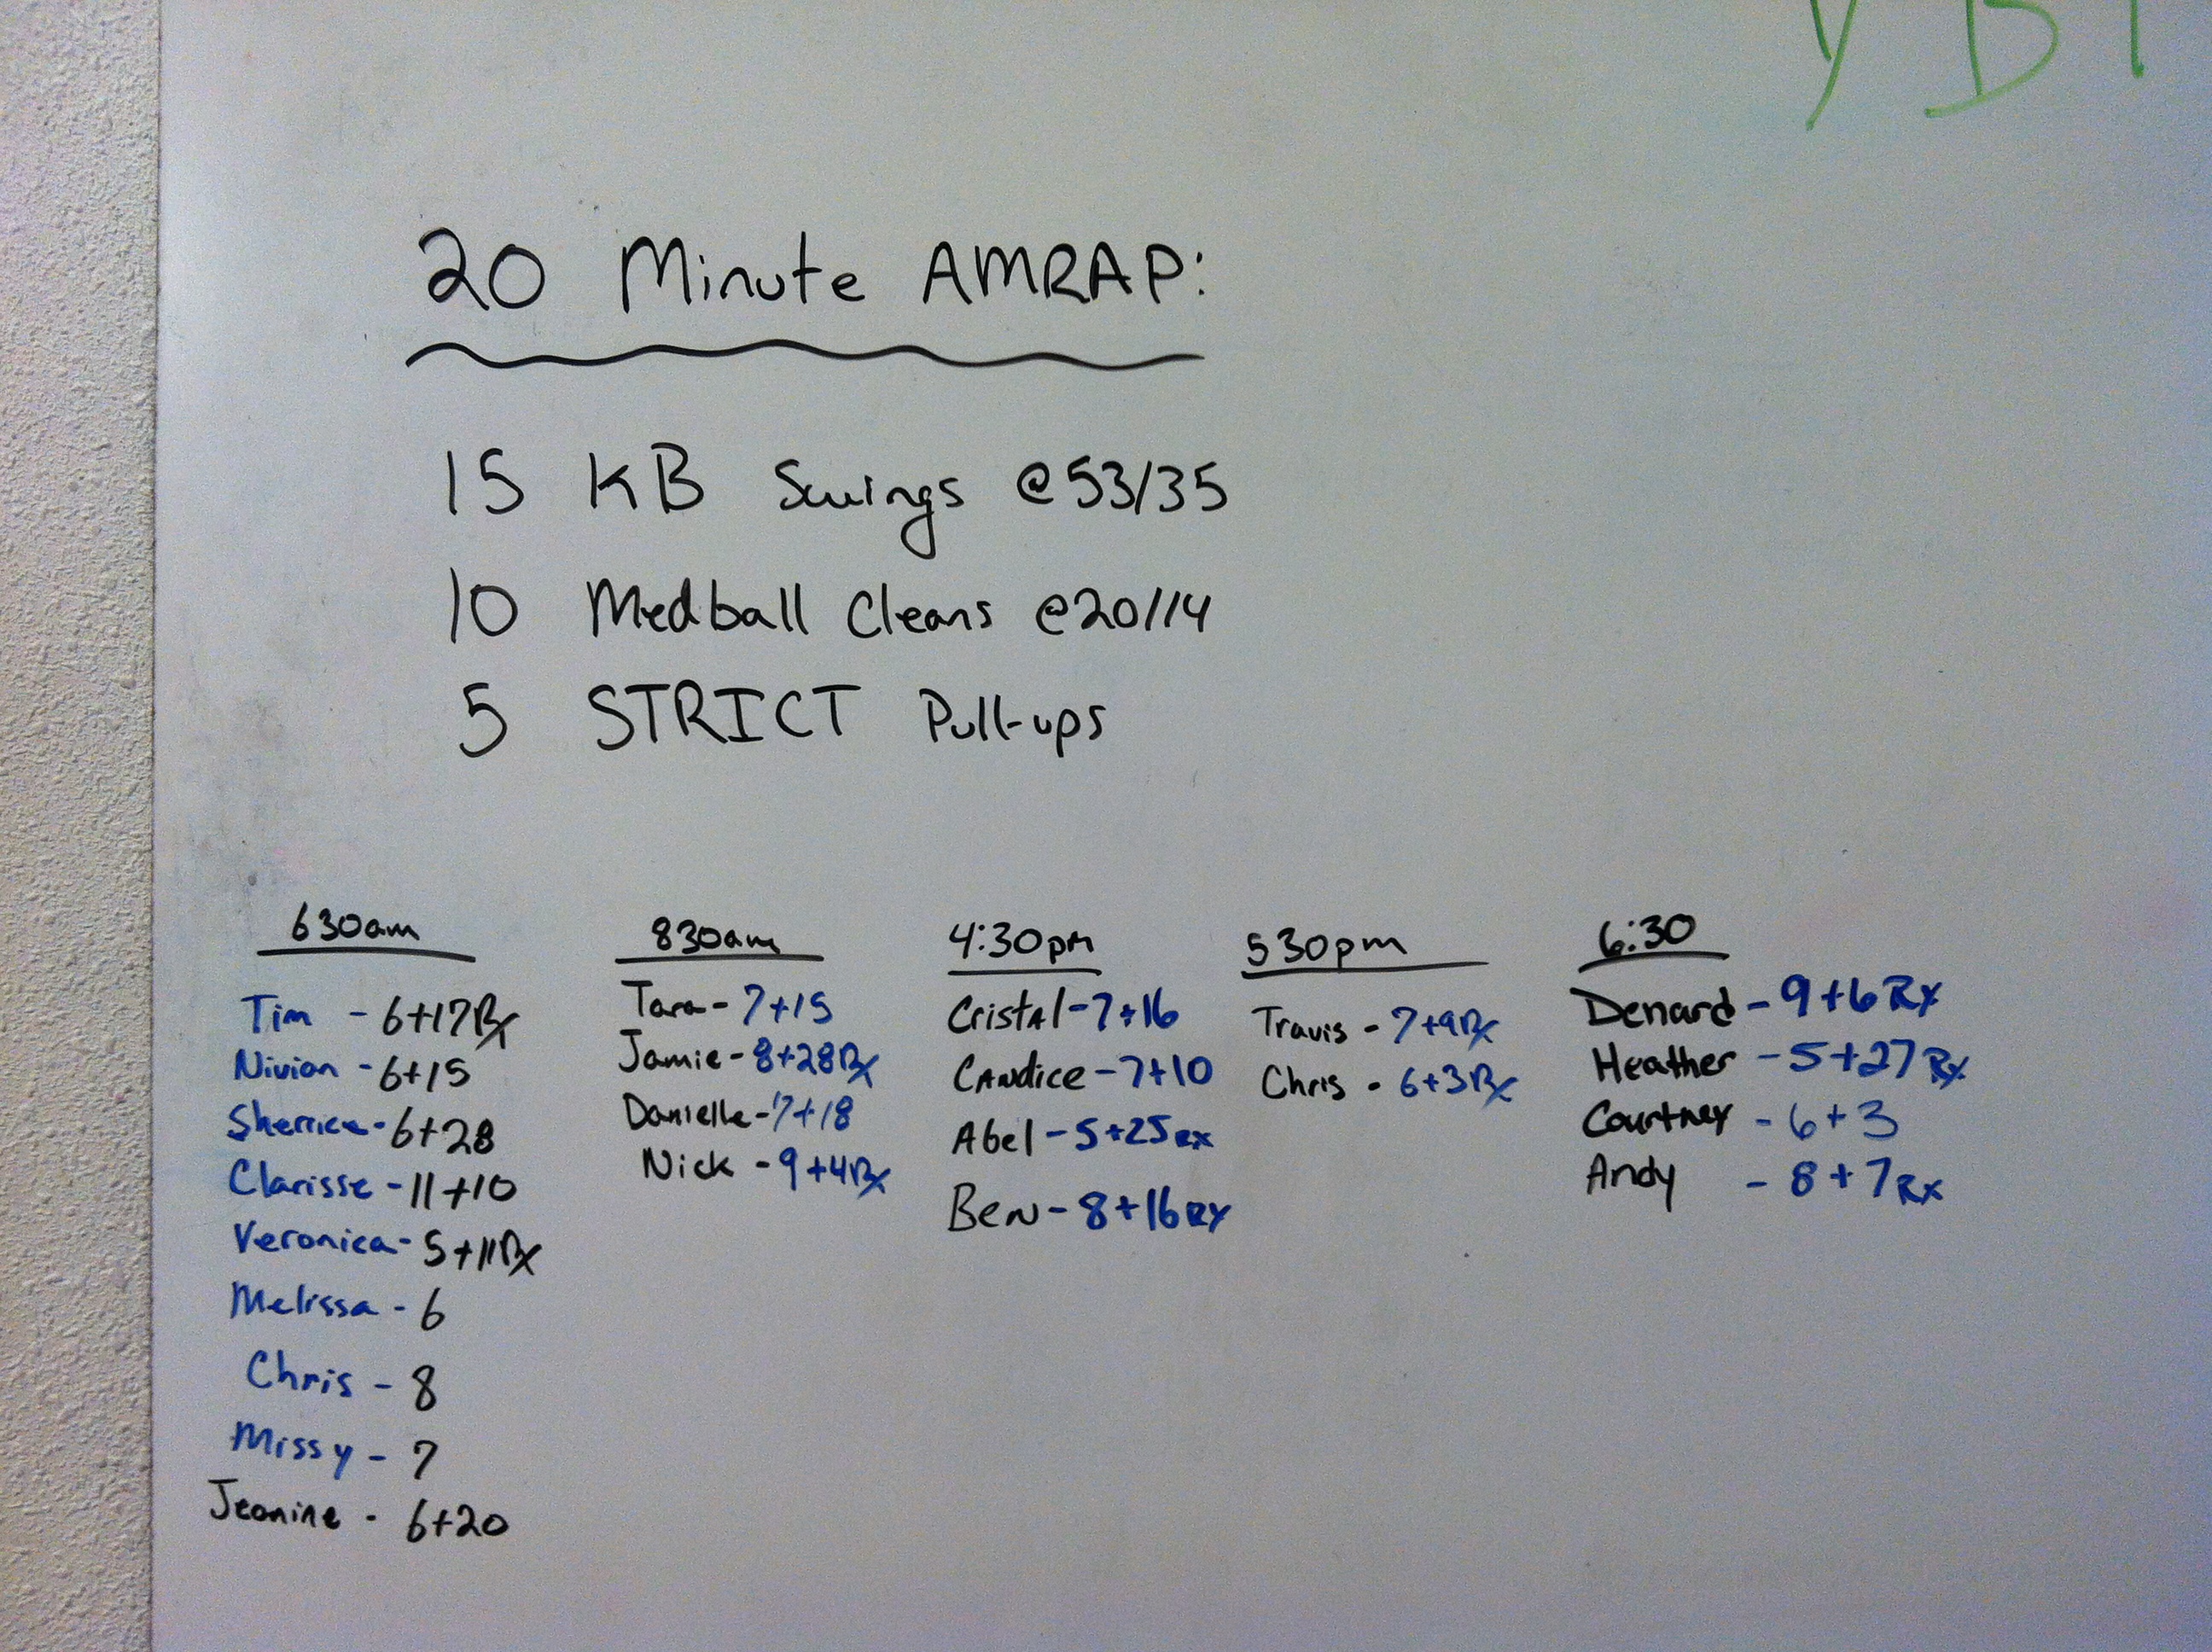 20 Minute AMRAP:
15 KB Swings @53/35
10 Medball Cleans @20/14
5 STRICT Pull-ups
630am
Tim - 6+17Rx
Nivian - 6+15
Sherrice - 6+28
Clarisse - 11+10
Veronica - 5+11Rx
Melissa - 6
Chris - 8
Missy - 7
Jeanine - 6+20
830am
Tara - 7+15
Jamie - 8+28Rx
Danielle - 7+18
Nick - 9+4Rx
4:30pm
Cristal - 7+16
Candice - 7+10
Abel - 5+25Rx
Ben - 8+16Rx
530pm
Travis - 7+9Rx
Chris - 6+3Rx
6:30
Denard - 9+6Rx
Heather - 5+27Rx
Courtney - 6+3
Andy - 8+7Rx